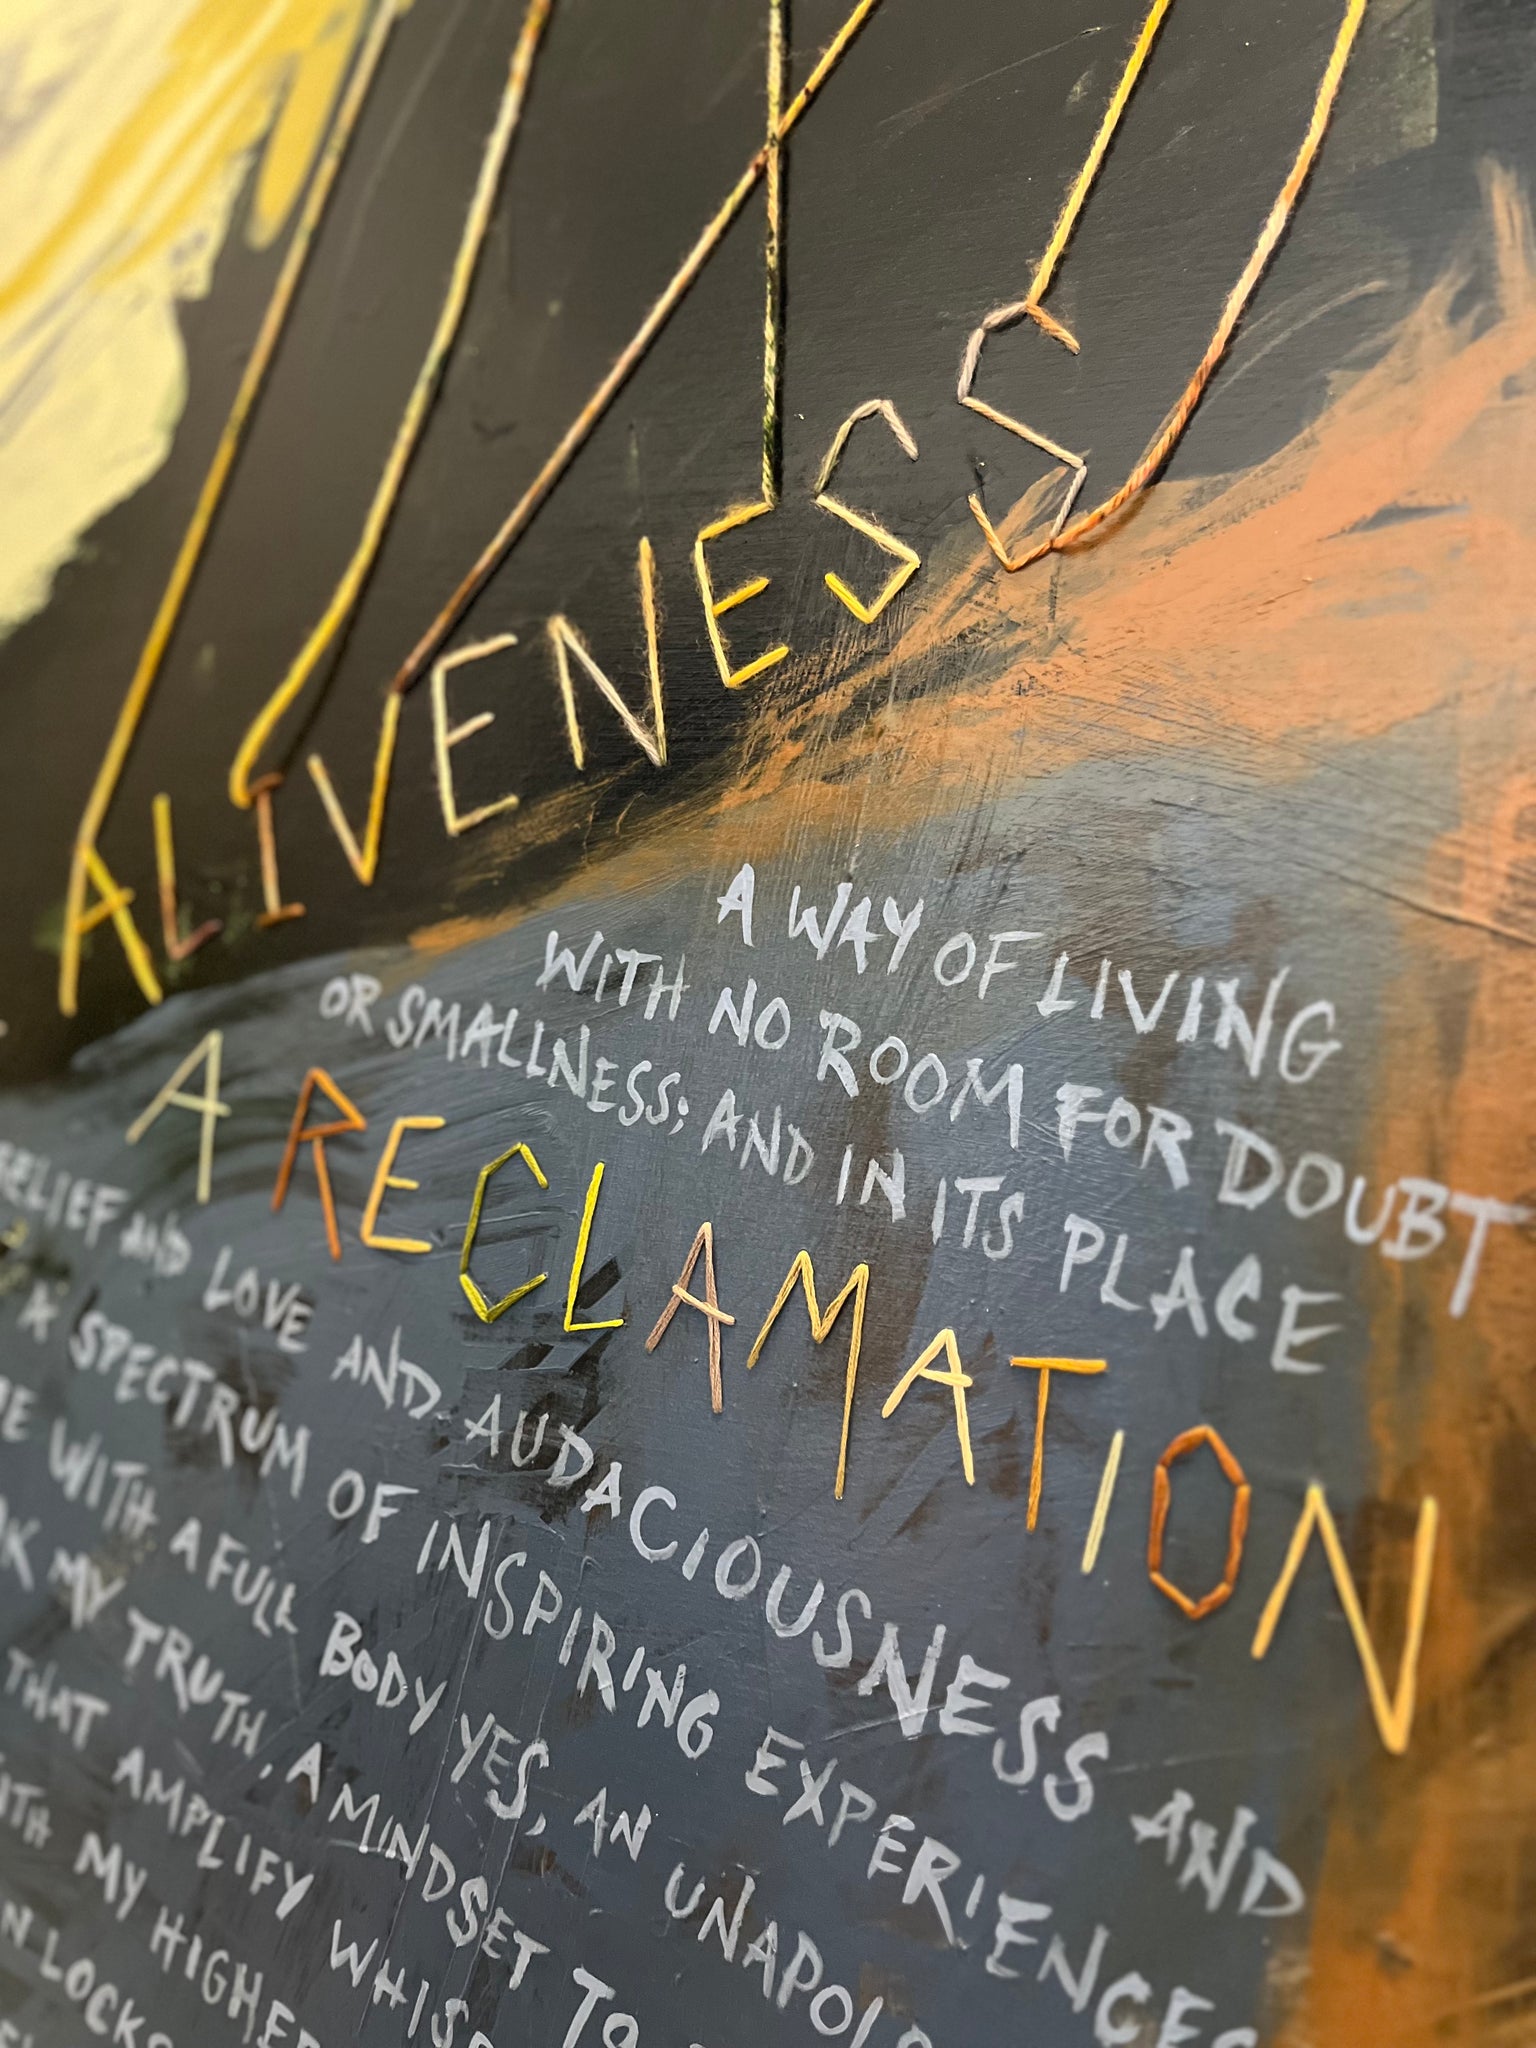 ALIVENESS
A WAY OF LIVING
WITH NO ROOM FOR DOUBT
OR SMALLNESS; AND IN ITS PLACE
A RECLAMATION
BELIEF AND LOVE AND AUDACIOUSNESS AND
A SPECTRUM OF INSPIRING EXPERIENCES
WITH A FULL BODY YES, AN UNAPOLO
MY TRUTH, A MINDSET TO
THAT AMPLIFY WHISP
MY HIGHER
LOCKS